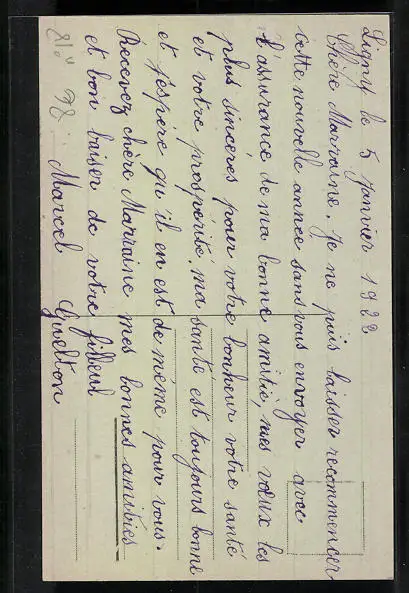 Ligny le 5 Janvier 1922
Chère Marraine. Je ne puis laisser recommencer
cette nouvelle année sans vous envoyer avec
l'assurance de ma bonne amitié, mes vœux les
plus sincères pour votre bonheur votre santé
et votre prospérité, ma santé est toujours bonne
et j'espère qu'il en est de même pour vous.
Recevez chère Marraine mes bonnes amitiés
et bon baiser de votre filleul
Marcel